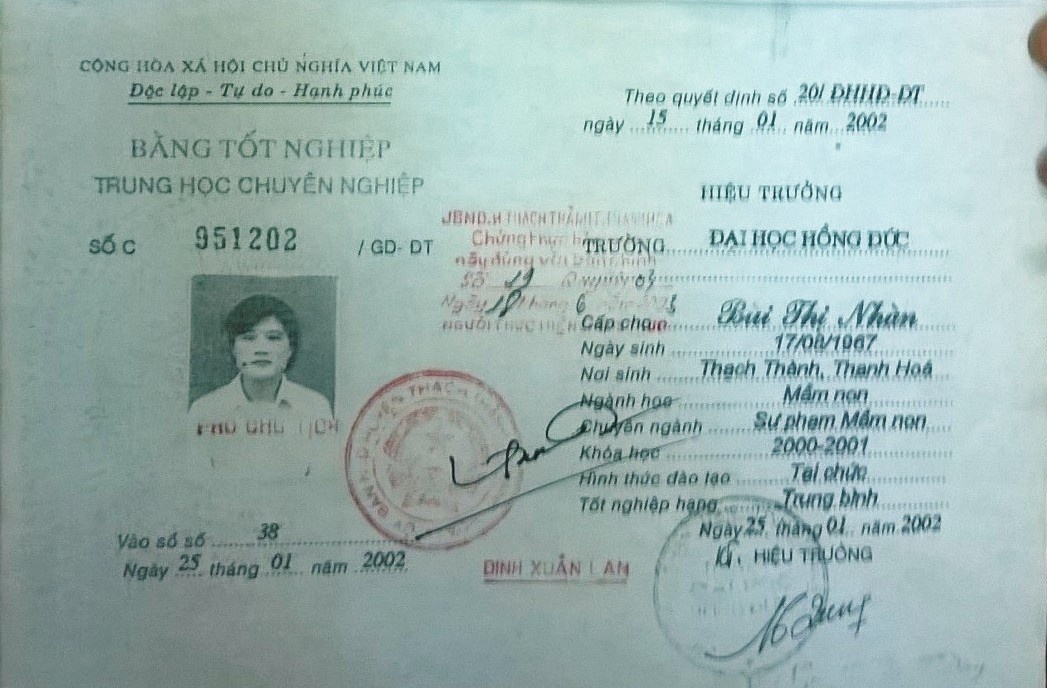 CỘNG HÒA XÃ HỘI CHỦ NGHĨA VIỆT NAM
Độc lập - Tự do - Hạnh phúc
BẰNG TỐT NGHIỆP
TRUNG HỌC CHUYÊN NGHIỆP
SỐ C 951202 / GD- ĐT
PHÓ CHỦ TỊCH
Vào sổ số 38
Ngày 25 tháng 01 năm 2002
Chứng thực
Ngày 18 tháng 6 năm
ĐINH XUÂN LAN
Theo quyết định số 20/ ĐHHĐ-ĐT
ngày 15 tháng 01 năm 2002
HIỆU TRƯỞNG
TRƯỜNG ĐẠI HỌC HỒNG ĐỨC
Cấp cho Bùi Thị Nhàn
Ngày sinh 17/08/1967
Nơi sinh Thạch Thành, Thanh Hoá
Ngành học Mầm non
Chuyên ngành Sư phạm Mầm non
Khóa học 2000-2001
Hình thức đào tạo Tại chức
Tốt nghiệp hạng Trung bình
Ngày 25 tháng 01 năm 2002
Kt. HIỆU TRƯỞNG